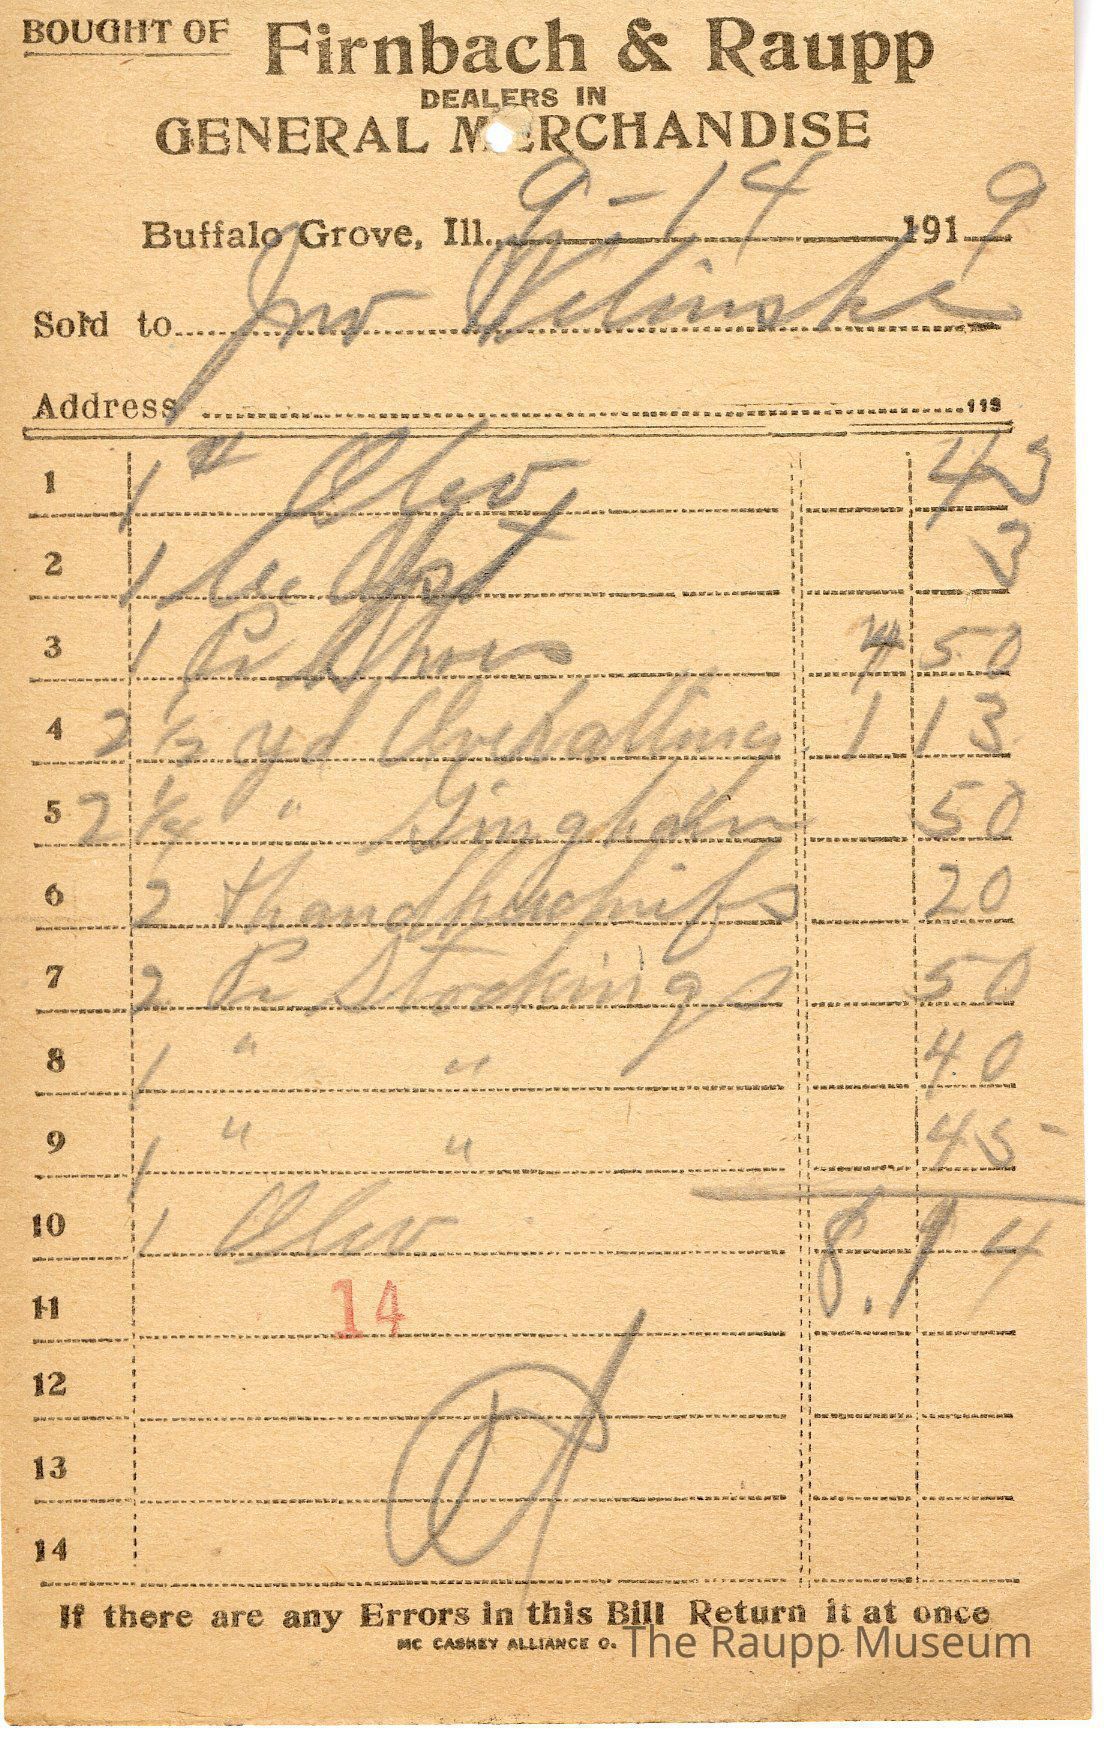 BOUGHT OF Firnbach & Raupp
DEALERS IN
GENERAL MERCHANDISE
Buffalo Grove, Ill. 9-14 1919
Sold to Jno
Address 119
1 1 # Oleo 43
2 1 3
3 1 Pr Shoes 4 50
4 2 1/2 yd 1 13
5 2 1/4 " Gingham 50
6 2 Handkerchiefs 20
7 2 Pr Stockings 50
8 1 " " 40
9 1 " " 45
10 1 Oleo 8.14
11 14
12
13
14
If there are any Errors in this Bill Return it at once
MC CASKEY ALLIANCE O.
The Raupp Museum